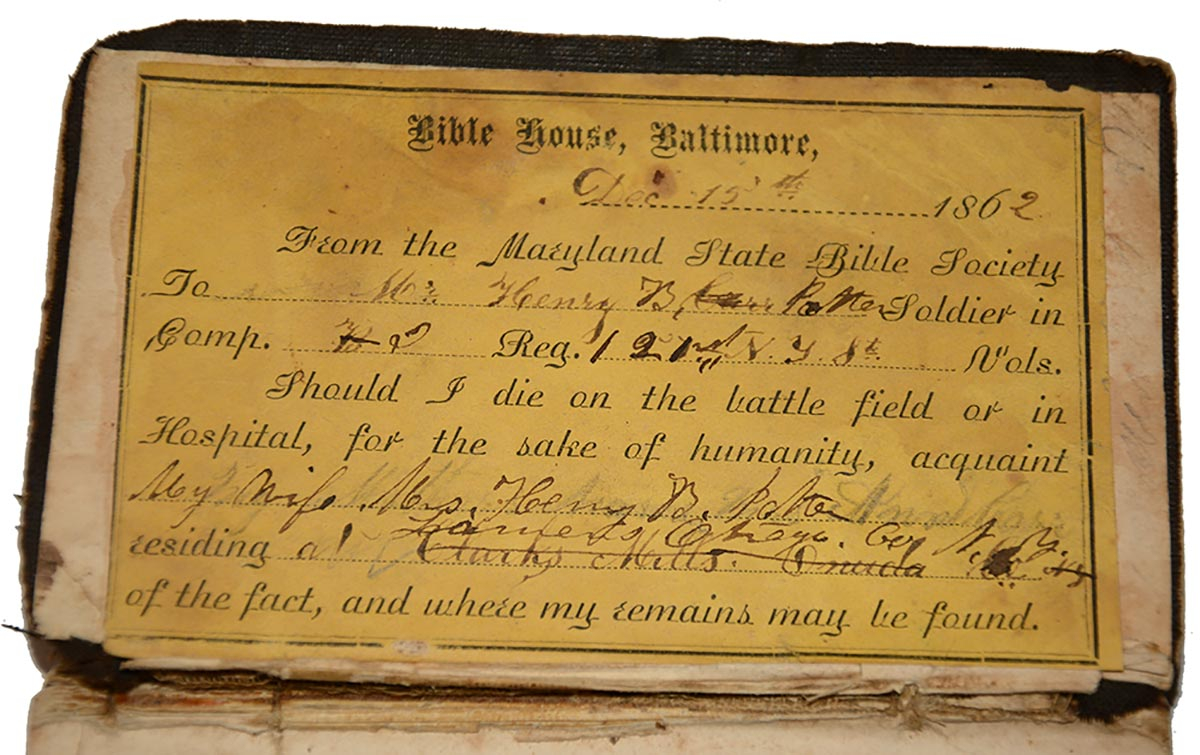 Bible House, Baltimore,
Dec 15th 1862
From the Maryland State Bible Society
To Mr Henry B. Potter Soldier in
Comp. Reg. 121st N Y St. Vols.
Should I die on the battle field or in
Hospital, for the sake of humanity, acquaint
My Wife Mrs. Henry B. Potter
Otsego. Co. N. Y.
residing at Clarks Mills. Oneida
of the fact, and where my remains may be found.